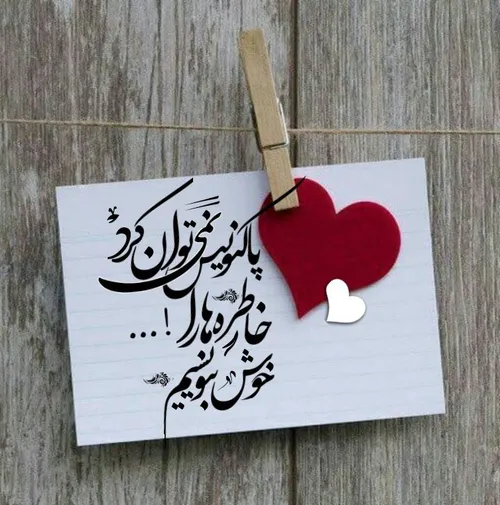 پاکنویس نمی توان کرد
خاطره ها را !...
خوش بنویسیم